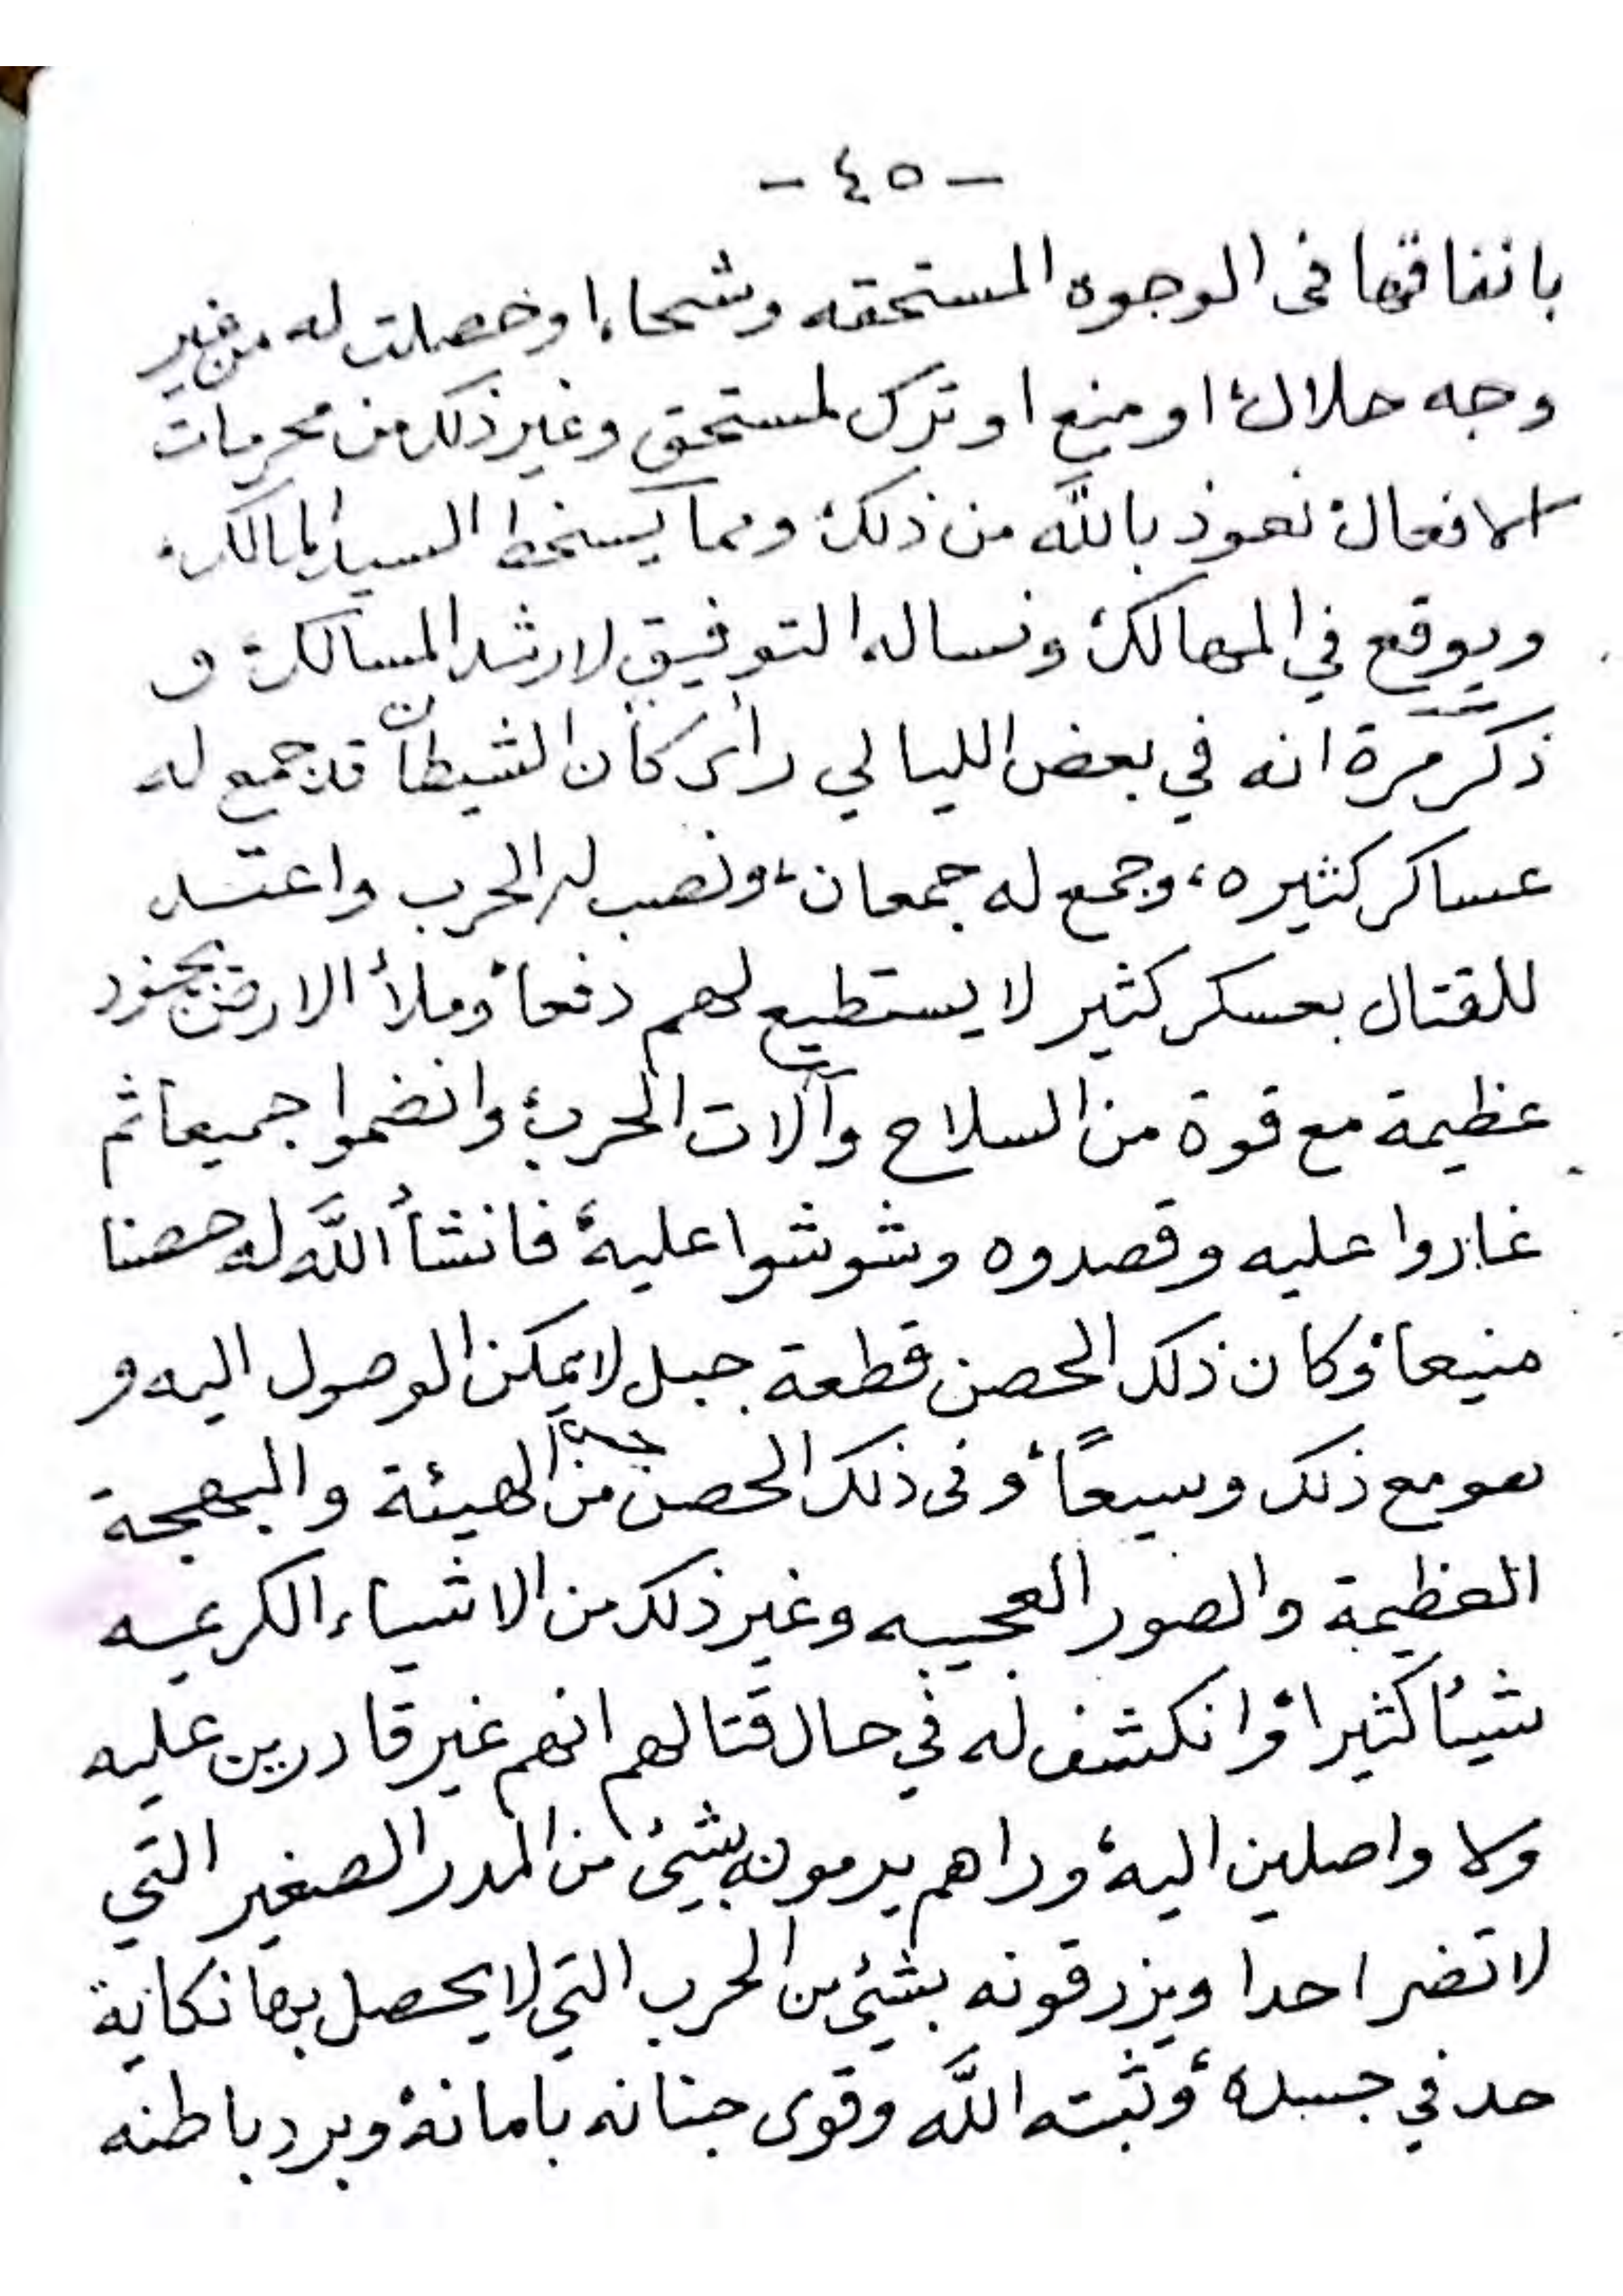 - ٤٥ -
بانفاقها فى الوجوه المستحقه وشحاءا وخصلت له من غير
وجه حلال، او منع او ترك لمستحق وغير ذلك من محرمات
الافعال، نعوذ بالله من ذلك، ومما يسخط السيد المالك،
ويوقع في المهالك، ونساله التوفيق لارشد المسالك، و
ذكر مرة انه في بعض الليالي رأى كأن الشيطان قد جمع له
عساكر كثيره، وجمع له جمعان، ونصب له الحرب واعتد
للقتال بعسكر كثير لا يستطيع لهم دفعا، وملأ الارض بجنود
عظيمة مع قوة من السلاح وآلات الحرب، وانضموا جميعا ثم
غاروا عليه وقصدوه وشوشوا عليه، فانشأ الله له حصنا
منيعا، وكان ذلك الحصن قطعة جبل لا يمكن الوصول اليه و
هو مع ذلك وسيعاً، وفى ذلك الحصن من الهيئة والبهجة
العظيمة والصور العجيبه وغير ذلك من الاشياء الكريمه
شيئا كثيرا، وانكشف له في حال قتالهم انهم غير قادرين عليه
ولا واصلين اليه، وراهم يرمونه بشيئ من المدر الصغير التي
لا تضر احدا ويزرقونه بشيئ من الحرب التي لا يحصل بها نكاية
حد في جسده، وثبته الله وقوى جنانه بامانة، وبرد باطنه